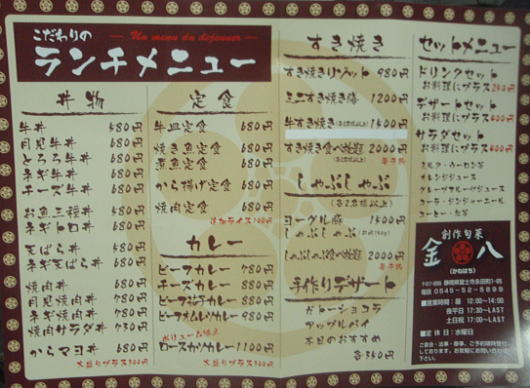 こだわりの
— Un menu du dejeuner —
ランチメニュー
丼物
牛丼 680円
月見牛丼 680円
とろろ牛丼 680円
ネギ牛丼 680円
チーズ牛丼 680円
お魚三種丼 680円
ネギトロ丼 680円
天ばら丼 680円
ネギ天ばら丼 680円
焼肉丼 680円
月見焼肉丼 780円
ネギ焼肉丼 780円
焼肉サラダ丼 730円
からマヨ丼 680円
大盛りプラス100円
定食
牛皿定食 680円
焼き魚定食 680円
煮魚定食 680円
から揚げ定食 680円
焼肉定食 680円
カレー
ビーフカレー 780円
チーズカレー 880円
ビーフオムレツカレー 980円
ボリューム満点
ロースカツカレー 1100円
大盛りプラス100円
すき焼き
すき焼きリゾット 980円
ミニすき焼き膳 1200円
牛すき焼き 1500円
すき焼き食べ放題 2000円
しゃぶしゃぶ
(各2名様以上)
ヨーグル豚 1500円
しゃぶしゃぶ
しゃぶしゃぶ食べ放題 2000円
手作りデザート
ガトーショコラ
アップルパイ
本日のおすすめ
各350円
セットメニュー
ドリンクセット
お料理にプラス200円
デザートセット
お料理にプラス400円
サラダセット
お料理にプラス400円
ミルク・ウーロン茶
オレンジジュース
グレープフルーツジュース
コーラ・ジンジャーエール
コーヒー・紅茶
創作旬菜
金八
(かねはち)
静岡県富士市永田町1-95
0545-52-1898
■営業時間：昼 12:00〜14:00
夜平日 17:30〜LAST
土日祝 17:00〜LAST
■定休日：水曜日
ご宴会・法事・慶事、ご予約随時受付
しております。お気軽にお問い合わせ下さい。